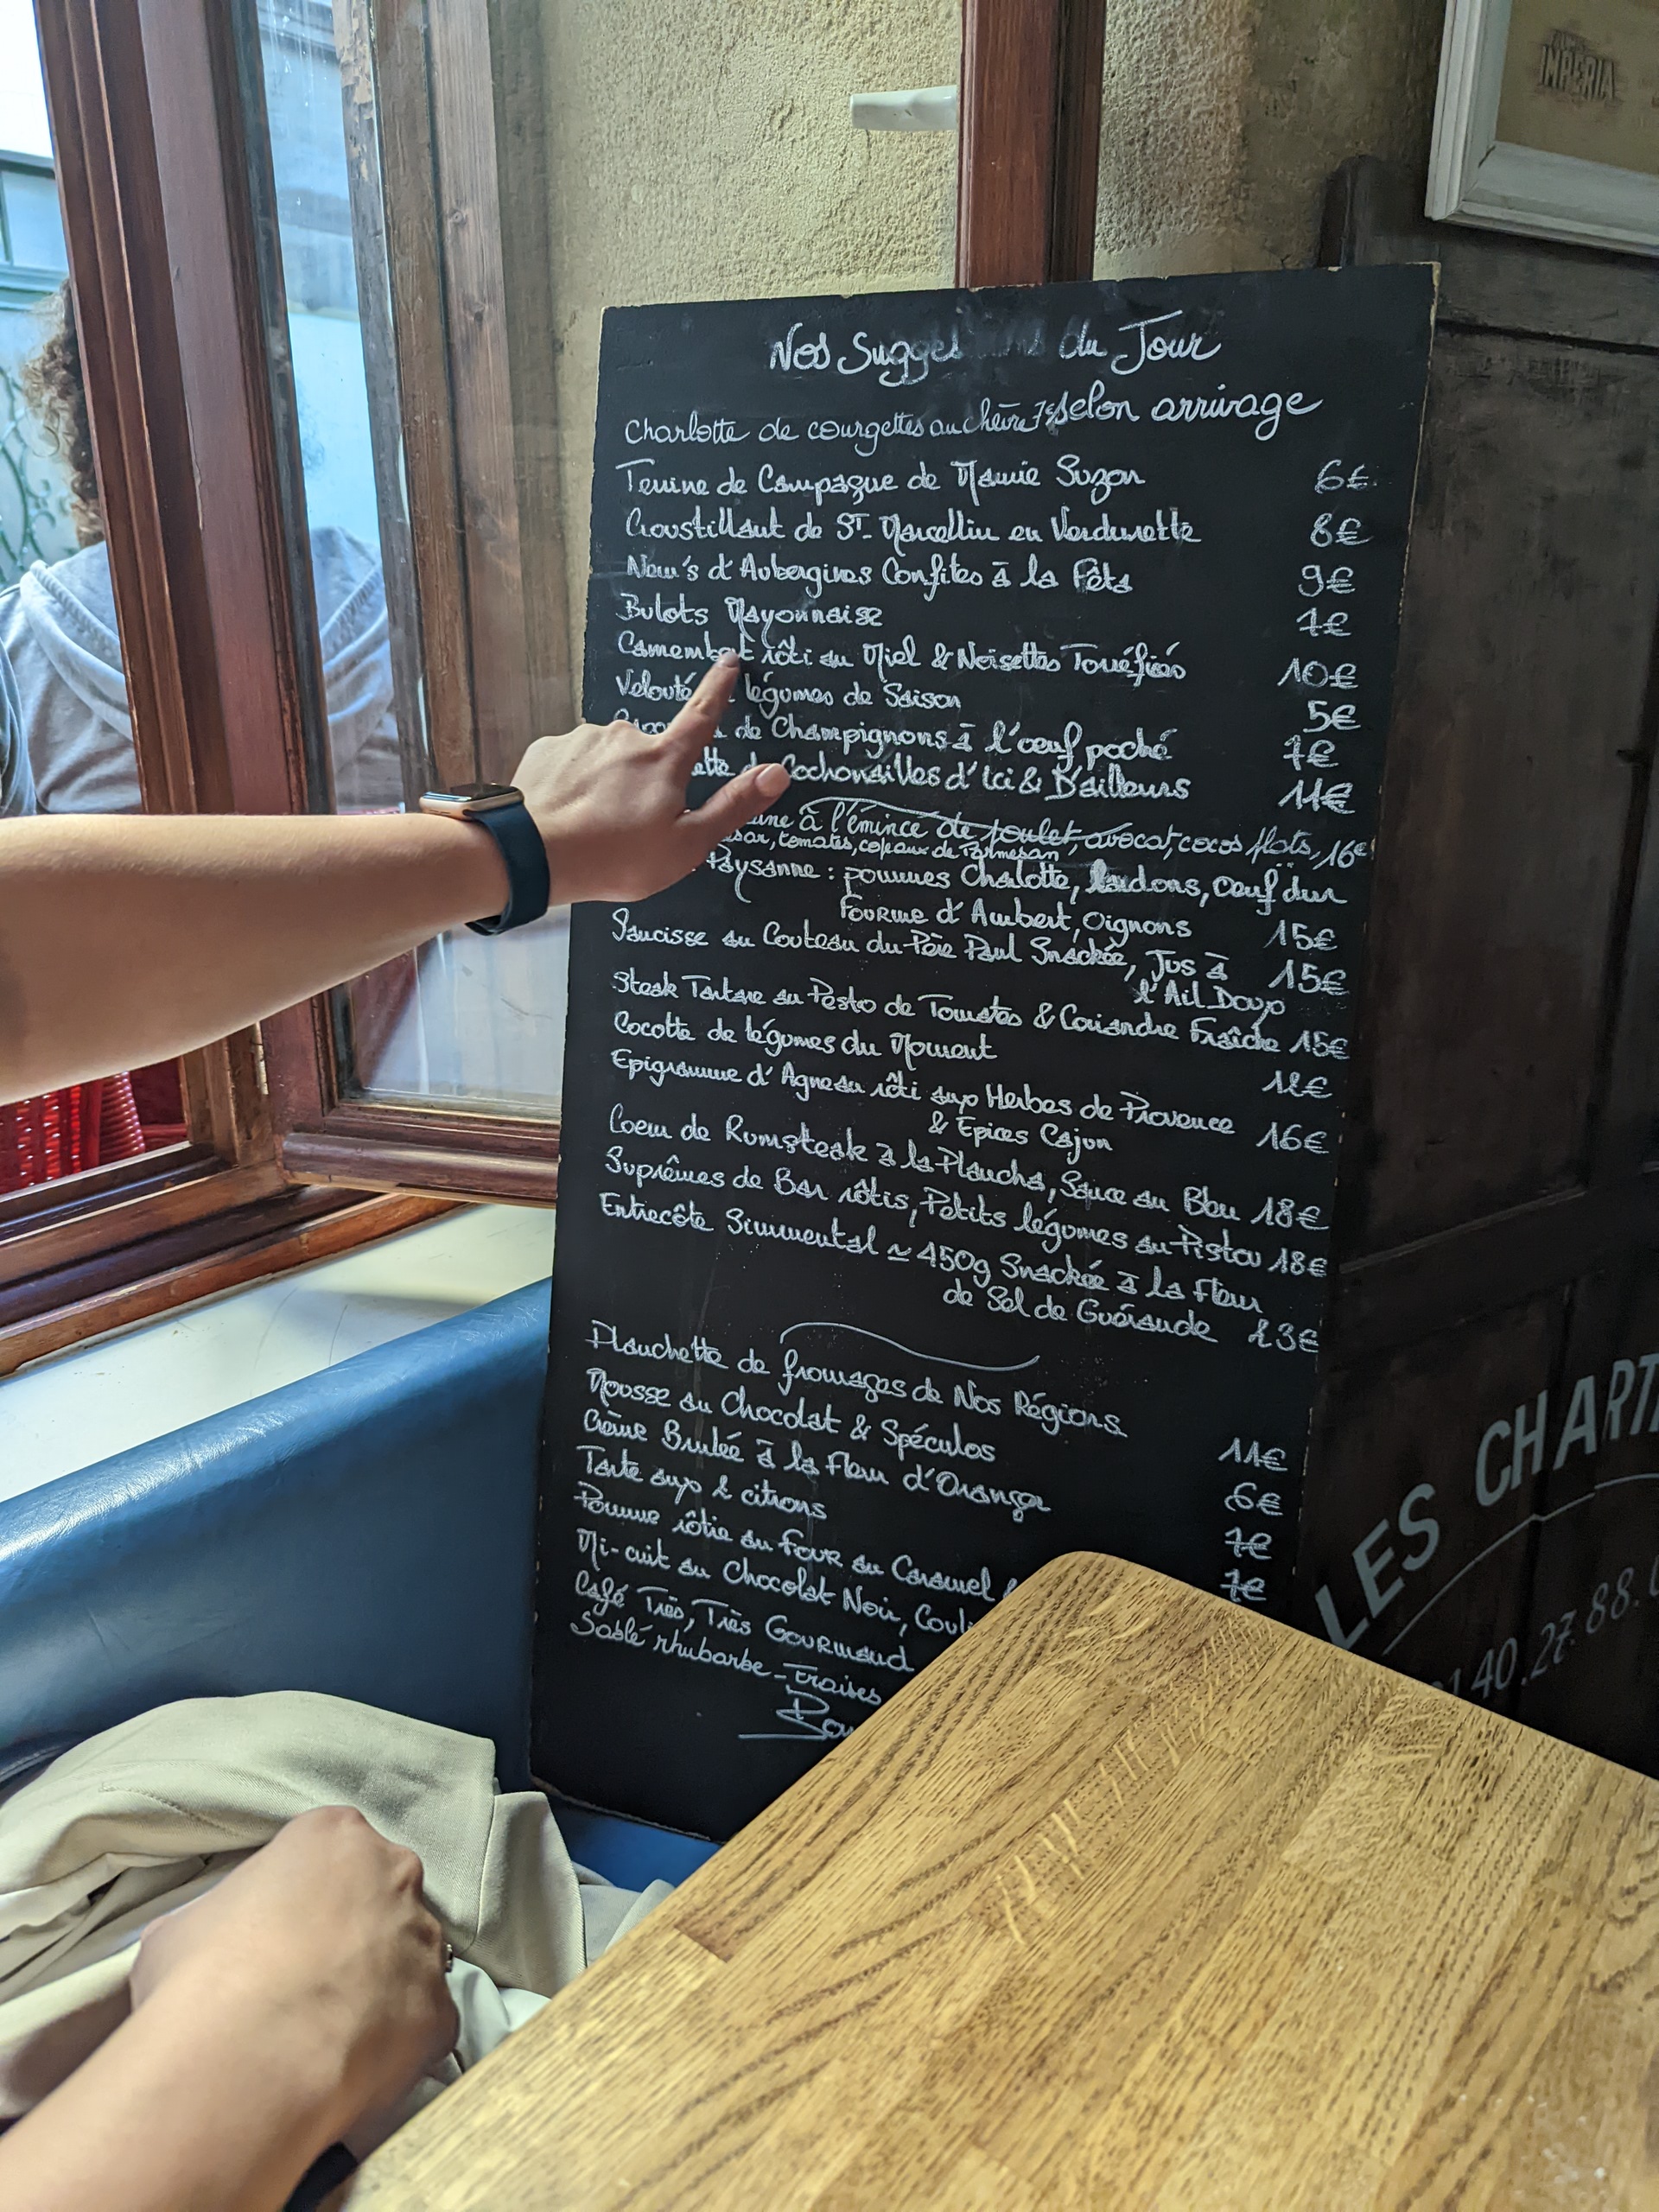 Nos Sugges du Jour
selon arrivage
Charlotte de courgettes au chèvre 7€
Terrine de Campagne de Mamie Suzon 6€
Croustillant de St. Marcellin en Verdurette 8€
Nem's d'Aubergines Confites à la Fêta 9€
Bulots Mayonnaise 7€
Camembert rôti au Miel & Noisettes Torréfiés 10€
Velouté légumes de Saison 5€
de Champignons à l'œuf poché 7€
ette de Cochonailles d'Ici & D'ailleurs 11€
à l'émincé de poulet, avocat, cocos flots, 16€
tomates, copeaux de Parmesan
Paysanne : pommes Charlotte, lardons, oeuf dur
Fourme d'Ambert, Oignons 15€
Saucisse au Couteau du Père Paul Snackée, Jus à
l'Ail Doux 15€
Steak Tartare au Pesto de Tomates & Coriandre Fraîche 15€
Cocotte de légumes du Moment 12€
Epigramme d'Agneau rôti aux Herbes de Provence
& Epices Cajun 16€
Coeur de Rumsteak à la Plancha, Sauce au Bleu 18€
Suprêmes de Bar rôtis, Petits légumes au Pistou 18€
Entrecôte Simmental ≃ 450g Snackée à la Fleur
de Sel de Guérande 23€
Planchette de fromages de Nos Régions 11€
Mousse au Chocolat & Spéculos 6€
Crème Brulée à la Fleur d'Oranger 7€
Tarte aux 2 citrons 7€
Pomme rôtie au Four au Caramel
Mi-cuit au Chocolat Noir, Couli
Café Très, Très Gourmand
Sablé rhubarbe - Fraises
IMPERIA
LES CHART
40.27.88.